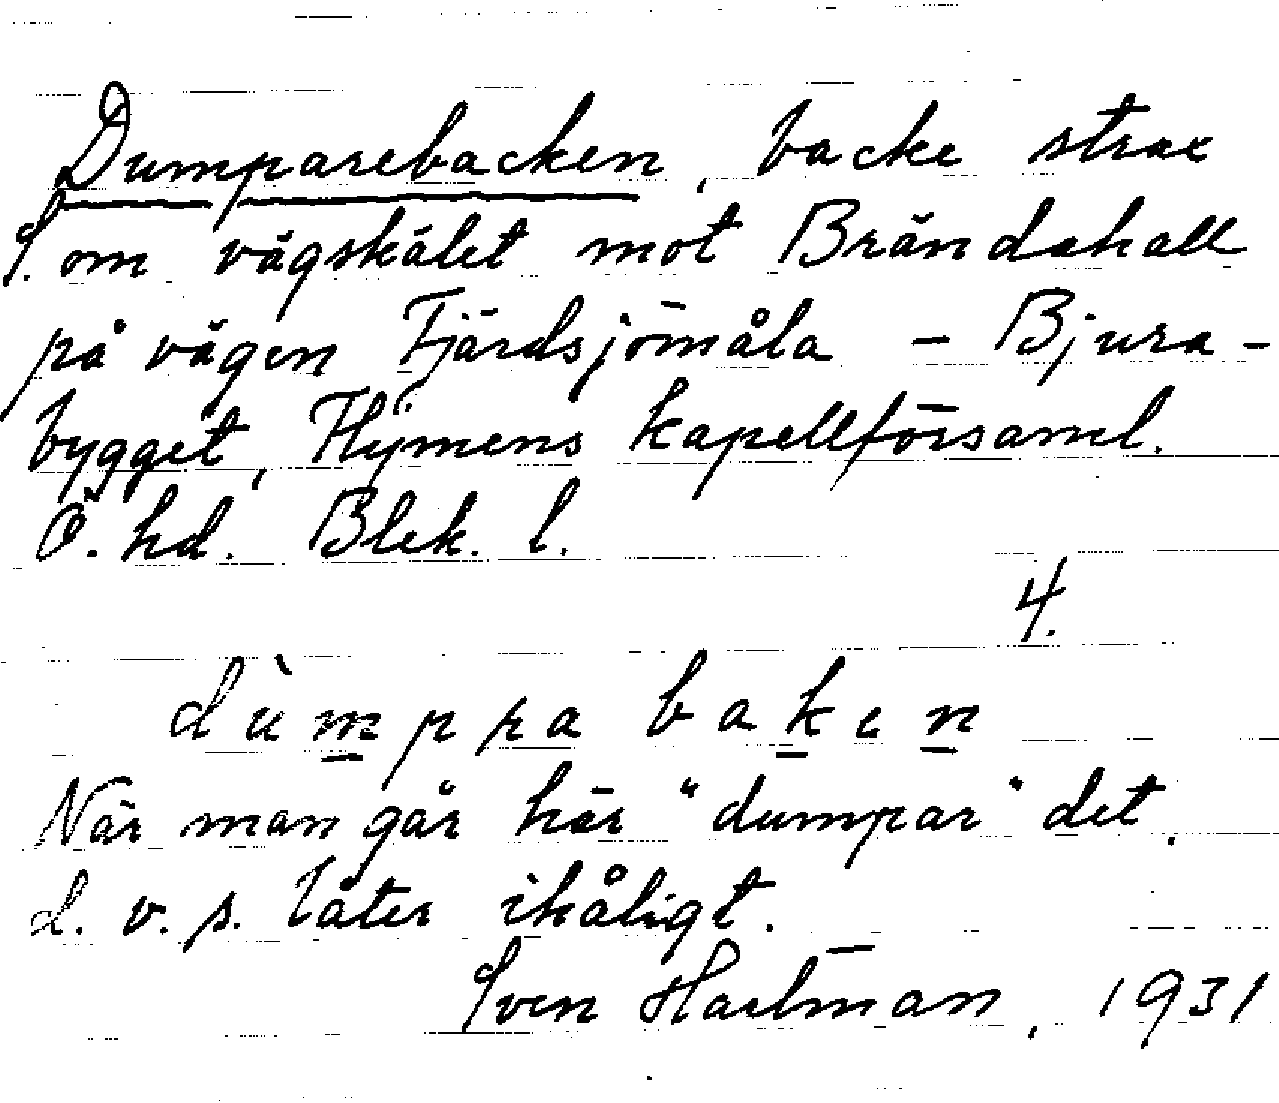 Dumparebacken, backe strax
S. om vägskälet mot Brändahall
på vägen Fjärdsjömåla - Bjura-
bygget, Flymens kapellförsaml.
Ö. hd. Blek. l.
4.
dùmppa baken
När man går här "dumpar" det.
d. v. s. låter ihåligt.
Sven Hartman, 1931